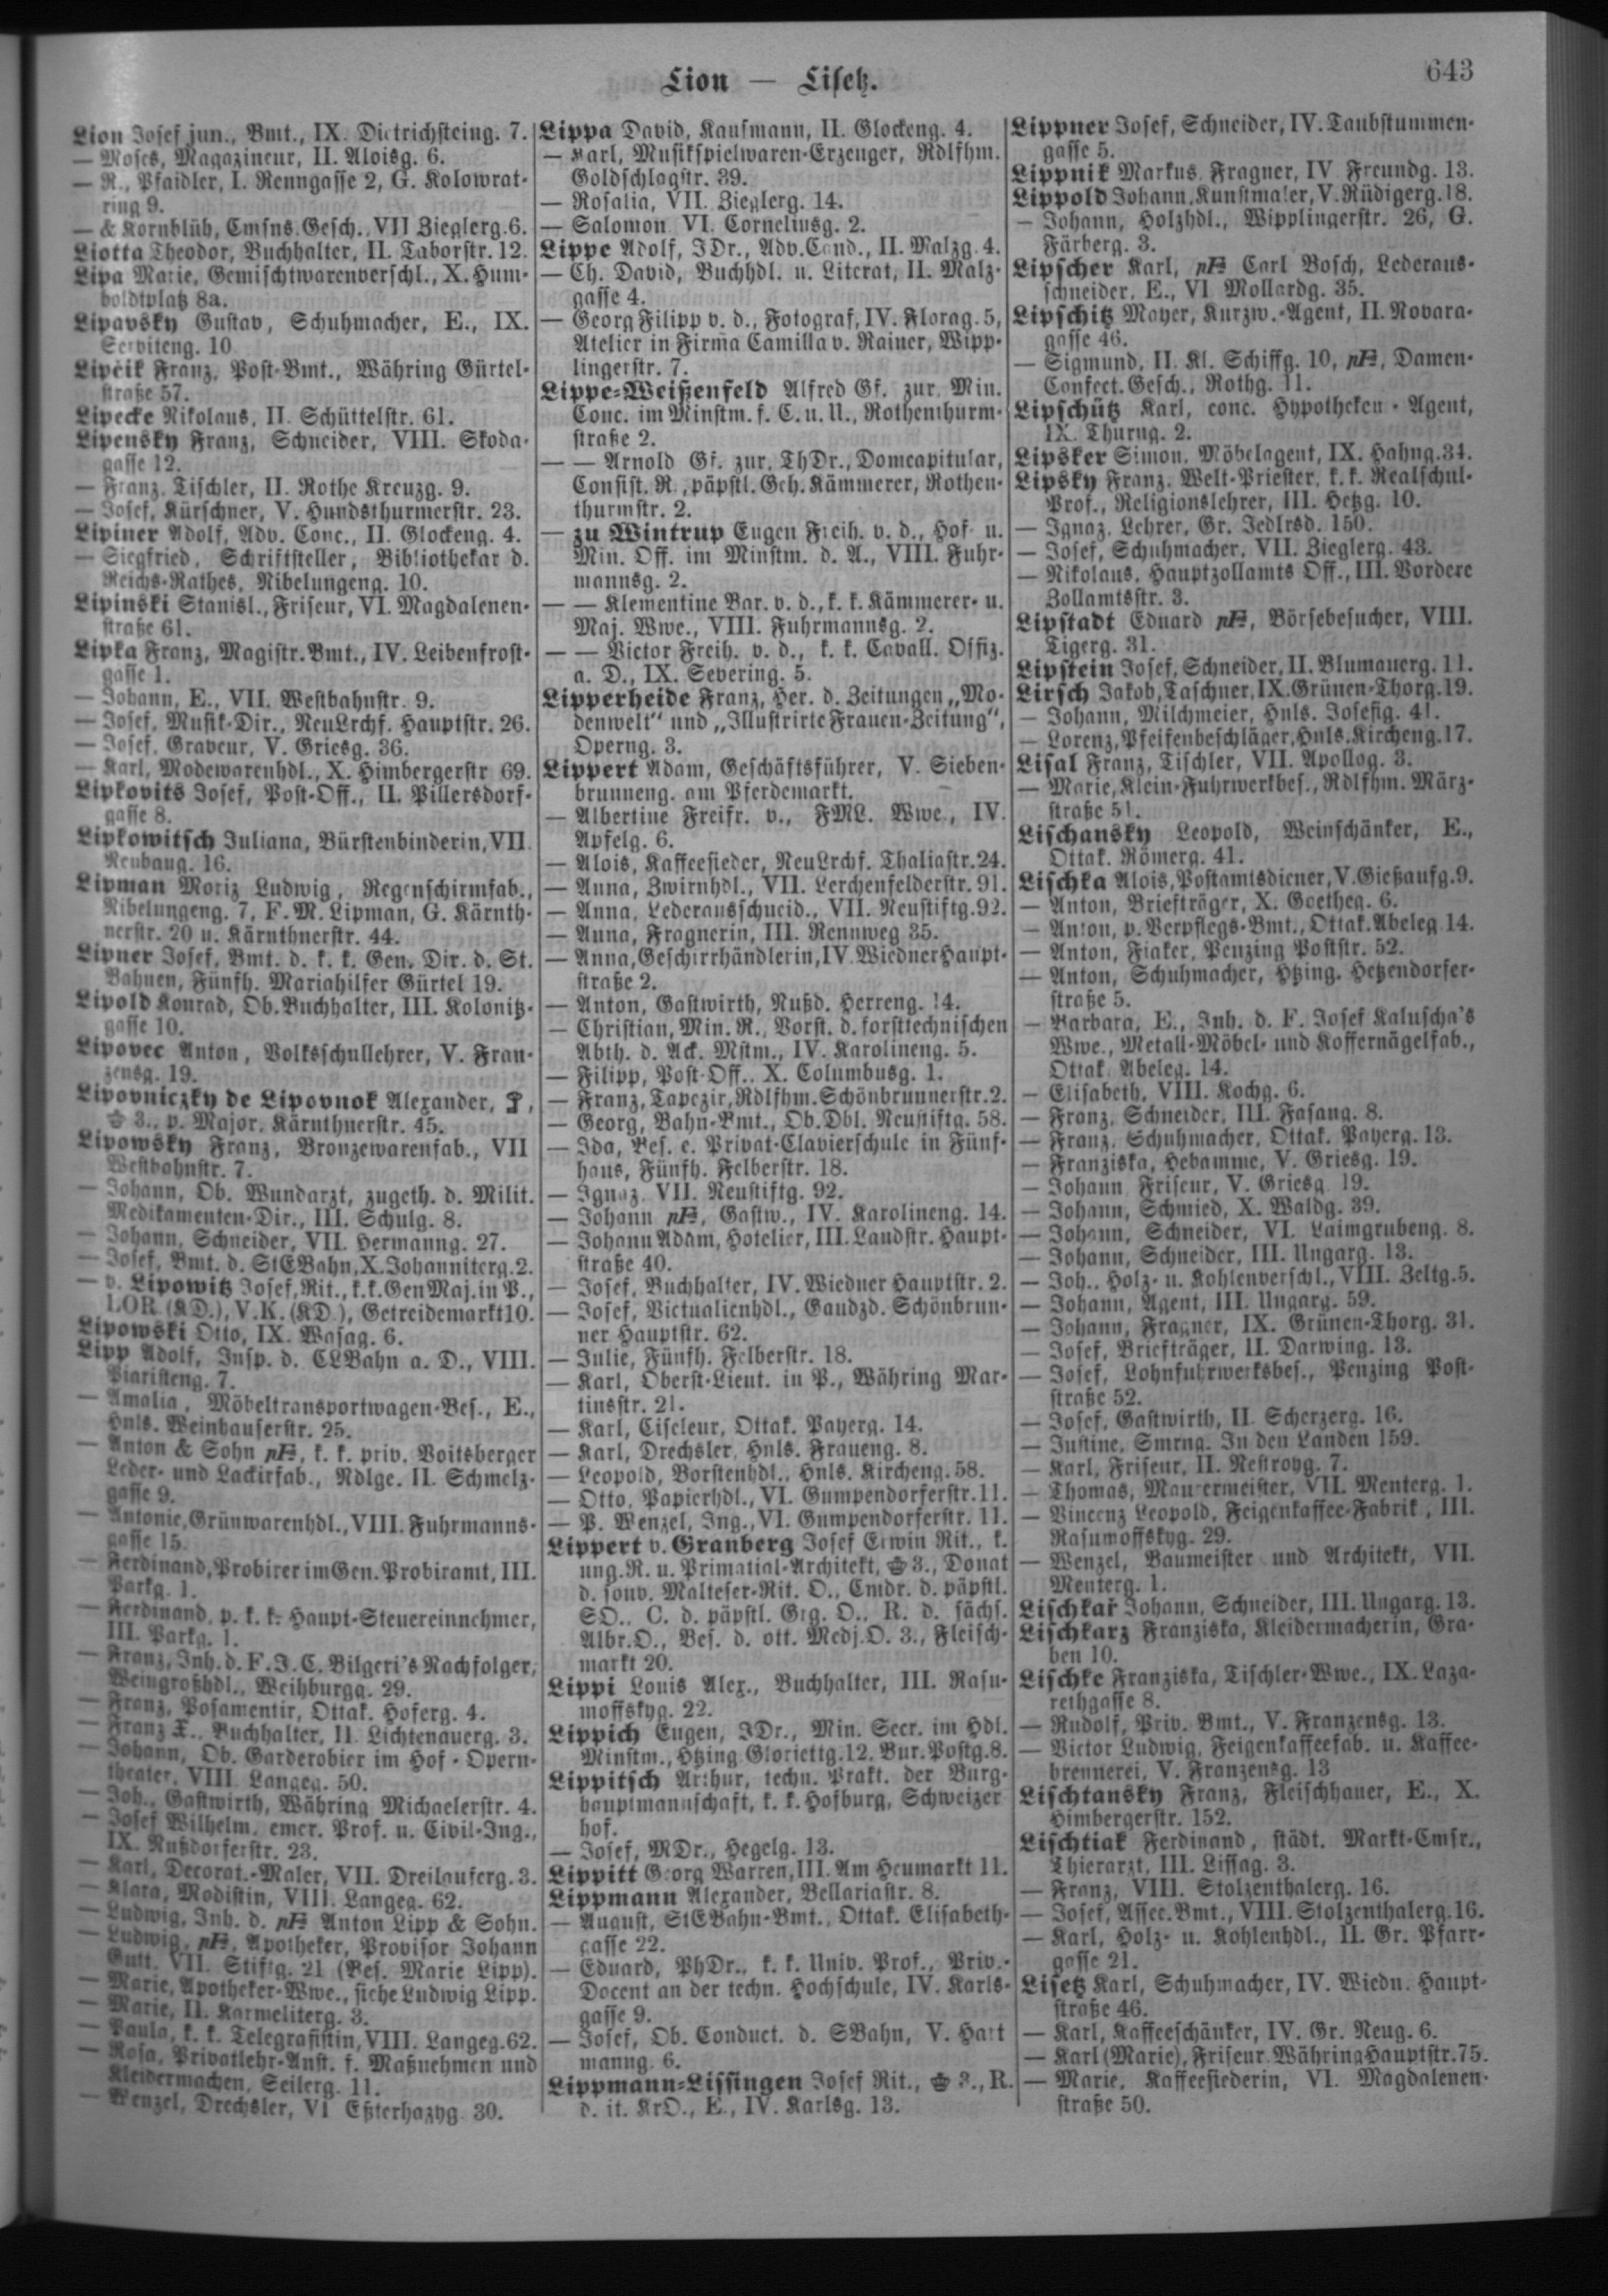 Lion — Lisetz.
643
Lion Josef jun., Bmt., IX. Dietrichsteing. 7.
— Moses, Magazineur, II. Aloisg. 6.
— R., Pfaidler, I. Renngasse 2, G. Kolowrat-
ring 9.
— & Kornblüh, Cmsns. Gesch., VII Zieglerg. 6.
Liotta Theodor, Buchhalter, II. Taborstr. 12.
Lipa Marie, Gemischtwarenverschl., X. Hum-
boldtplatz 8a.
Lipavsky Gustav, Schuhmacher, E., IX.
Serviteng. 10
Lipčik Franz, Post-Bmt., Währing Gürtel-
straße 57.
Lipecke Nikolaus, II. Schüttelstr. 61.
Lipensky Franz, Schneider, VIII. Skoda-
gasse 12.
— Franz, Tischler, II. Rothe Kreuzg. 9.
— Josef, Kürschner, V. Hundsthurmerstr. 23.
Lipiner Adolf, Adv. Conc., II. Glockeng. 4.
— Siegfried, Schriftsteller, Bibliothekar d.
Reichs-Rathes, Nibelungeng. 10.
Lipinski Stanisl., Friseur, VI. Magdalenen-
straße 61.
Lipka Franz, Magistr. Bmt., IV. Leibenfrost-
gasse 1.
— Johann, E., VII. Westbahnstr. 9.
— Josef, Musik-Dir., NeuLrchf. Hauptstr. 26.
— Josef, Graveur, V. Griesg. 36.
— Karl, Modewarenhdl., X. Himbergerstr 69.
Lipkovits Josef, Post-Off., II. Pillersdorf-
gasse 8.
Lipkowitsch Juliana, Bürstenbinderin, VII
Neubaug. 16.
Lipman Moriz Ludwig, Regenschirmfab.,
Nibelungeng. 7, F. M. Lipman, G. Kärnth-
nerstr. 20 u. Kärnthnerstr. 44.
Lipner Josef, Bmt. d. k. k. Gen. Dir. d. St.
Bahnen, Fünfh. Mariahilfer Gürtel 19.
Lipold Konrad, Ob. Buchhalter, III. Kolonitz-
gasse 10.
Lipovec Anton, Volksschullehrer, V. Fran-
zensg. 19.
Lipovniczky de Lipovnok Alexander,
3., p. Major, Kärnthnerstr. 45.
Lipowsky Franz, Bronzewarenfab., VII
Westbahnstr. 7.
— Johann, Ob. Wundarzt, zugeth. d. Milit.
Medikamenten-Dir., III. Schulg. 8.
— Johann, Schneider, VII. Hermanng. 27.
— Josef, Bmt. d. StEBahn, X. Johanniterg. 2.
— v. Lipowitz Josef, Rit., k. k. GenMaj. in P.,
LOR. (KD.), V. K. (KD.), Getreidemarkt 10.
Lipowski Otto, IX. Wasag. 6.
Lipp Adolf, Insp. d. CLBahn a. D., VIII.
Piaristeng. 7.
— Amalia, Möbeltransportwagen-Bes., E.,
Hnls. Weinhauserstr. 25.
— Anton & Sohn pF, k. k. priv. Voitsberger
Leder- und Lackirfab., Ndlge. II. Schmelz-
gasse 9.
— Antonie, Grünwarenhdl., VIII. Fuhrmanns-
gasse 15.
— Ferdinand, Probirer im Gen. Probiramt, III.
Parkg. 1.
— Ferdinand, p. k. k. Haupt-Steuereinnehmer,
III. Parkg. 1.
— Franz, Inh. d. F. J. C. Bilgeri's Nachfolger,
Weingroßhdl., Weihburgg. 29.
— Franz, Posamentir, Ottak. Hoferg. 4.
— Franz X., Buchhalter, II. Lichtenauerg. 3.
— Johann, Ob. Garderobier im Hof-Opern-
theater, VIII. Langeg. 50.
— Joh., Gastwirth, Währing Michaelerstr. 4.
— Josef Wilhelm, emer. Prof. u. Civil-Ing.,
IX. Nußdorferstr. 23.
— Karl, Decorat.-Maler, VII. Dreilauferg. 3.
— Klara, Modistin, VIII. Langeg. 62.
— Ludwig, Inh. d. pF Anton Lipp & Sohn.
— Ludwig, pF, Apotheker, Provisor Johann
Gutt. VII. Stiftg. 21 (Bes. Marie Lipp).
— Marie, Apotheker-Wwe., siehe Ludwig Lipp.
— Marie, II. Karmeliterg. 3.
— Paula, k. k. Telegrafistin, VIII. Langeg. 62.
— Rosa, Privatlehr-Anst. f. Maßnehmen und
Kleidermachen, Seilerg. 11.
— Wenzel, Drechsler, VI Eßterhazyg. 30.
Lippa David, Kaufmann, II. Glockeng. 4.
— Karl, Musikspielwaren-Erzeuger, Rdlfhm.
Goldschlagstr. 39.
— Rosalia, VII. Zieglerg. 14.
— Salomon, VI. Corneliusg. 2.
Lippe Adolf, JDr., Adv. Cand., II. Malzg. 4.
— Ch. David, Buchhdl. u. Literat, II. Malz-
gasse 4.
— Georg Filipp v. d., Fotograf, IV. Florag. 5,
Atelier in Firma Camilla v. Rainer, Wipp-
lingerstr. 7.
Lippe-Weißenfeld Alfred Gf. zur, Min.
Conc. im Minstm. f. C. u. U., Rothenthurm-
straße 2.
— — Arnold Gf. zur, ThDr., Domcapitular,
Consist. R., päpstl. Geh. Kämmerer, Rothen-
thurmstr. 2.
— zu Wintrup Eugen Freih. v. d., Hof- u.
Min. Off. im Minstm. d. A., VIII. Fuhr-
mannsg. 2.
— — Klementine Bar. v. d., k. k. Kämmerer- u.
Maj. Wwe., VIII. Fuhrmannsg. 2.
— — Victor Freih. v. d., k. k. Cavall. Offiz.
a. D., IX. Severing. 5.
Lipperheide Franz, Her. d. Zeitungen „Mo-
denwelt“ und „Illustrirte Frauen-Zeitung“,
Operng. 3.
Lippert Adam, Geschäftsführer, V. Sieben-
brunneng. am Pferdemarkt.
— Albertine Freifr. v., FML. Wwe., IV.
Apfelg. 6.
— Alois, Kaffeesieder, NeuLrchf. Thaliastr. 24.
— Anna, Zwirnhdl., VII. Lerchenfelderstr. 91.
— Anna, Lederausschneid., VII. Neustiftg. 92.
— Anna, Fragnerin, III. Rennweg 35.
— Anna, Geschirrhändlerin, IV. Wiedner Haupt-
straße 2.
— Anton, Gastwirth, Nußd. Herreng. 14.
— Christian, Min. R., Vorst. d. forsttechnischen
Abth. d. Ack. Mstm., IV. Karolineng. 5.
— Filipp, Post-Off., X. Columbusg. 1.
— Franz, Tapezir, Rdlfhm. Schönbrunnerstr. 2.
— Georg, Bahn-Bmt., Ob. Dbl. Neustiftg. 58.
— Ida, Bes. e. Privat-Clavierschule in Fünf-
haus, Fünfh. Felberstr. 18.
— Ignaz, VII. Neustiftg. 92.
— Johann pF, Gastw., IV. Karolineng. 14.
— Johann Adam, Hotelier, III. Landstr. Haupt-
straße 40.
— Josef, Buchhalter, IV. Wiedner Hauptstr. 2.
— Josef, Victualienhdl., Gaudzd. Schönbrun-
ner Hauptstr. 62.
— Julie, Fünfh. Felberstr. 18.
— Karl, Oberst-Lieut. in P., Währing Mar-
tinsstr. 21.
— Karl, Ciseleur, Ottak. Payerg. 14.
— Karl, Drechsler, Hnls. Fraueng. 8.
— Leopold, Borstenhdl., Hnls. Kircheng. 58.
— Otto, Papierhdl., VI. Gumpendorferstr. 11.
— P. Wenzel, Ing., VI. Gumpendorferstr. 11.
Lippert v. Granberg Josef Erwin Rit., k.
ung. R. u. Primatial-Architekt, 3., Donat
d. souv. Malteser-Rit. O., Cmdr. d. päpstl.
SO., C. d. päpstl. Grg. O., R. d. sächs.
Albr. O., Bes. d. ott. Medj. O. 3., Fleisch-
markt 20.
Lippi Louis Alex., Buchhalter, III. Rasu-
moffskyg. 22.
Lippich Eugen, JDr., Min. Secr. im Hdl.
Minstm., Htzing. Gloriettg. 12. Bur. Postg. 8.
Lippitsch Arthur, techn. Prakt. der Burg-
hauptmannschaft, k. k. Hofburg, Schweizer
hof.
— Josef, MDr., Hegelg. 13.
Lippitt Georg Warren, III. Am Heumarkt 11.
Lippmann Alexander, Bellariastr. 8.
— August, StEBahn-Bmt., Ottak. Elisabeth-
gasse 22.
— Eduard, PhDr., k. k. Univ. Prof., Priv.-
Docent an der techn. Hochschule, IV. Karls-
gasse 9.
— Josef, Ob. Conduct. d. SBahn, V. Hart
manng. 6.
Lippmann-Lissingen Josef Rit., 3., R.
d. it. KrO., E., IV. Karlsg. 13.
Lippner Josef, Schneider, IV. Taubstummen-
gasse 5.
Lippnik Markus, Fragner, IV Freundg. 13.
Lippold Johann, Kunstmaler, V. Rüdigerg. 18.
— Johann, Holzhdl., Wipplingerstr. 26, G.
Färberg. 3.
Lipscher Karl, pF Carl Bosch, Lederaus-
schneider, E., VI Mollardg. 35.
Lipschitz Mayer, Kurzw.-Agent, II. Novara-
gasse 46.
— Sigmund, II. Kl. Schiffg. 10, pF, Damen-
Confect. Gesch., Rothg. 11.
Lipschütz Karl, conc. Hypotheken-Agent,
IX. Thurng. 2.
Lipsker Simon, Möbelagent, IX. Hahng. 34.
Lipsky Franz, Welt-Priester, k. k. Realschul-
Prof., Religionslehrer, III. Hetzg. 10.
— Ignaz, Lehrer, Gr. Jedlrsd. 150.
— Josef, Schuhmacher, VII. Zieglerg. 43.
— Nikolaus, Hauptzollamts Off., III. Vordere
Zollamtsstr. 3.
Lipstadt Eduard pF, Börsebesucher, VIII.
Tigerg. 31.
Lipstein Josef, Schneider, II. Blumauerg. 11.
Lirsch Jakob, Taschner, IX. Grünen-Thorg. 19.
— Johann, Milchmeier, Hnls. Josefig. 41.
— Lorenz, Pfeifenbeschläger, Hnls. Kircheng. 17.
Lisal Franz, Tischler, VII. Apollog. 3.
— Marie, Klein-Fuhrwerkbes., Rdlfhm. März-
straße 51.
Lischansky Leopold, Weinschänker, E.,
Ottak. Römerg. 41.
Lischka Alois, Postamtsdiener, V. Gießaufg. 9.
— Anton, Briefträger, X. Goetheg. 6.
— Anton, p. Verpflegs-Bmt., Ottak. Abeleg. 14.
— Anton, Fiaker, Penzing Poststr. 52.
— Anton, Schuhmacher, Htzing. Hetzendorfer-
straße 5.
— Barbara, E., Inh. d. F. Josef Kaluscha's
Wwe., Metall-Möbel- und Koffernägelfab.,
Ottak. Abeleg. 14.
— Elisabeth, VIII. Kochg. 6.
— Franz, Schneider, III. Fasang. 8.
— Franz, Schuhmacher, Ottak. Payerg. 13.
— Franziska, Hebamme, V. Griesg. 19.
— Johann Friseur, V. Griesg. 19.
— Johann, Schmied, X. Waldg. 39.
— Johann, Schneider, VI. Laimgrubeng. 8.
— Johann, Schneider, III. Ungarg. 13.
— Joh., Holz- u. Kohlenverschl., VIII. Zeltg. 5.
— Johann, Agent, III. Ungarg. 59.
— Johann, Fragner, IX. Grünen-Thorg. 31.
— Josef, Briefträger, II. Darwing. 13.
— Josef, Lohnfuhrwerksbes., Penzing Post-
straße 52.
— Josef, Gastwirth, II. Scherzerg. 16.
— Justine, Smrng. In den Landen 159.
— Karl, Friseur, II. Nestroyg. 7.
— Thomas, Maurermeister, VII. Menterg. 1.
— Vincenz Leopold, Feigenkaffee-Fabrik, III.
Rasumoffskyg. 29.
— Wenzel, Baumeister und Architekt, VII.
Menterg. 1.
Lischkař Johann, Schneider, III. Ungarg. 13.
Lischkarz Franziska, Kleidermacherin, Gra-
ben 10.
Lischke Franziska, Tischler-Wwe., IX. Laza-
rethgasse 8.
— Rudolf, Priv. Bmt., V. Franzensg. 13.
— Victor Ludwig, Feigenkaffeefab. u. Kaffee-
brennerei, V. Franzensg. 13
Lischtansky Franz, Fleischhauer, E., X.
Himbergerstr. 152.
Lischtiak Ferdinand, städt. Markt-Cmsr.,
Thierarzt, III. Lissag. 3.
— Franz, VIII. Stolzenthalerg. 16.
— Josef, Assec. Bmt., VIII. Stolzenthalerg. 16.
— Karl, Holz- u. Kohlenhdl., II. Gr. Pfarr-
gasse 21.
Lisetz Karl, Schuhmacher, IV. Wiedn. Haupt-
straße 46.
— Karl, Kaffeeschänker, IV. Gr. Neug. 6.
— Karl (Marie), Friseur Währing Hauptstr. 75.
— Marie, Kaffeesiederin, VI. Magdalenen-
straße 50.